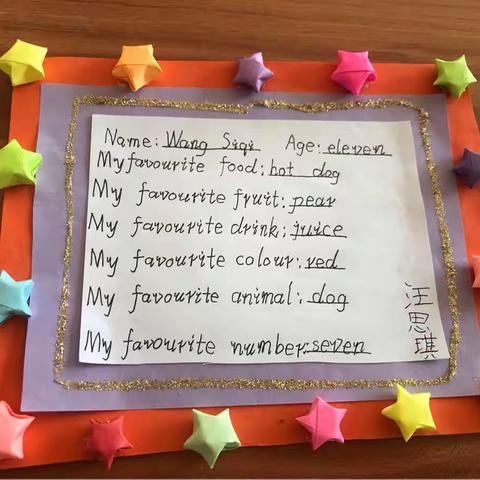 Name: Wang Siqi Age: eleven
My favourite food: hot dog
My favourite fruit: pear
My favourite drink: juice
My favourite colour: red
My favourite animal: dog
My favourite number: seven
汪思琪